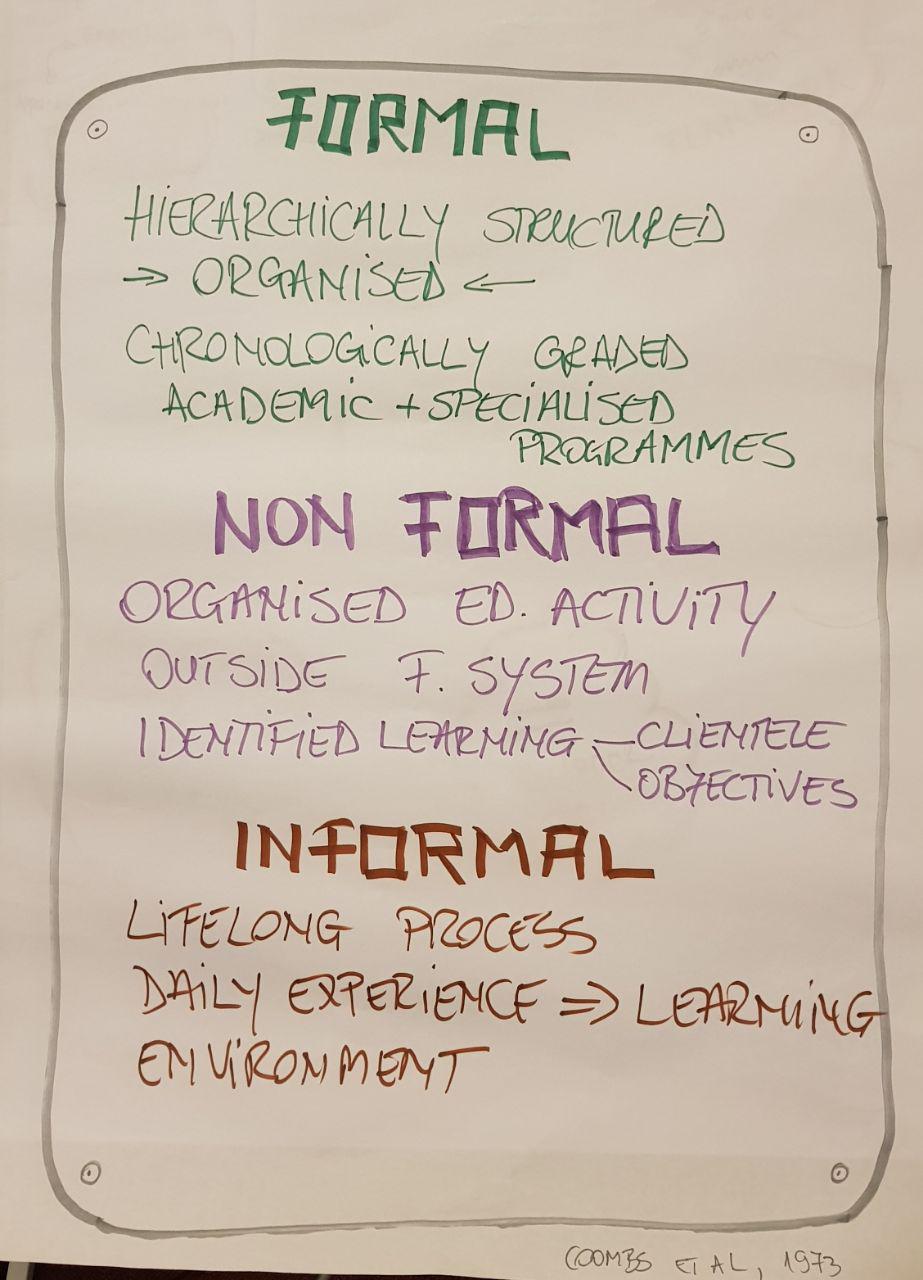 FORMAL
HIERARCHICALLY STRUCTURED
⇒ ORGANISED ⇐
CHRONOLOGICALLY GRADED
ACADEMIC + SPECIALISED
PROGRAMMES
NON FORMAL
ORGANISED ED. ACTIVITY
OUTSIDE F. SYSTEM
IDENTIFIED LEARNING – CLIENTELE
\ OBJECTIVES
INFORMAL
LIFELONG PROCESS
DAILY EXPERIENCE ⇒ LEARNING
ENVIRONMENT
COOMBS ET AL, 1973